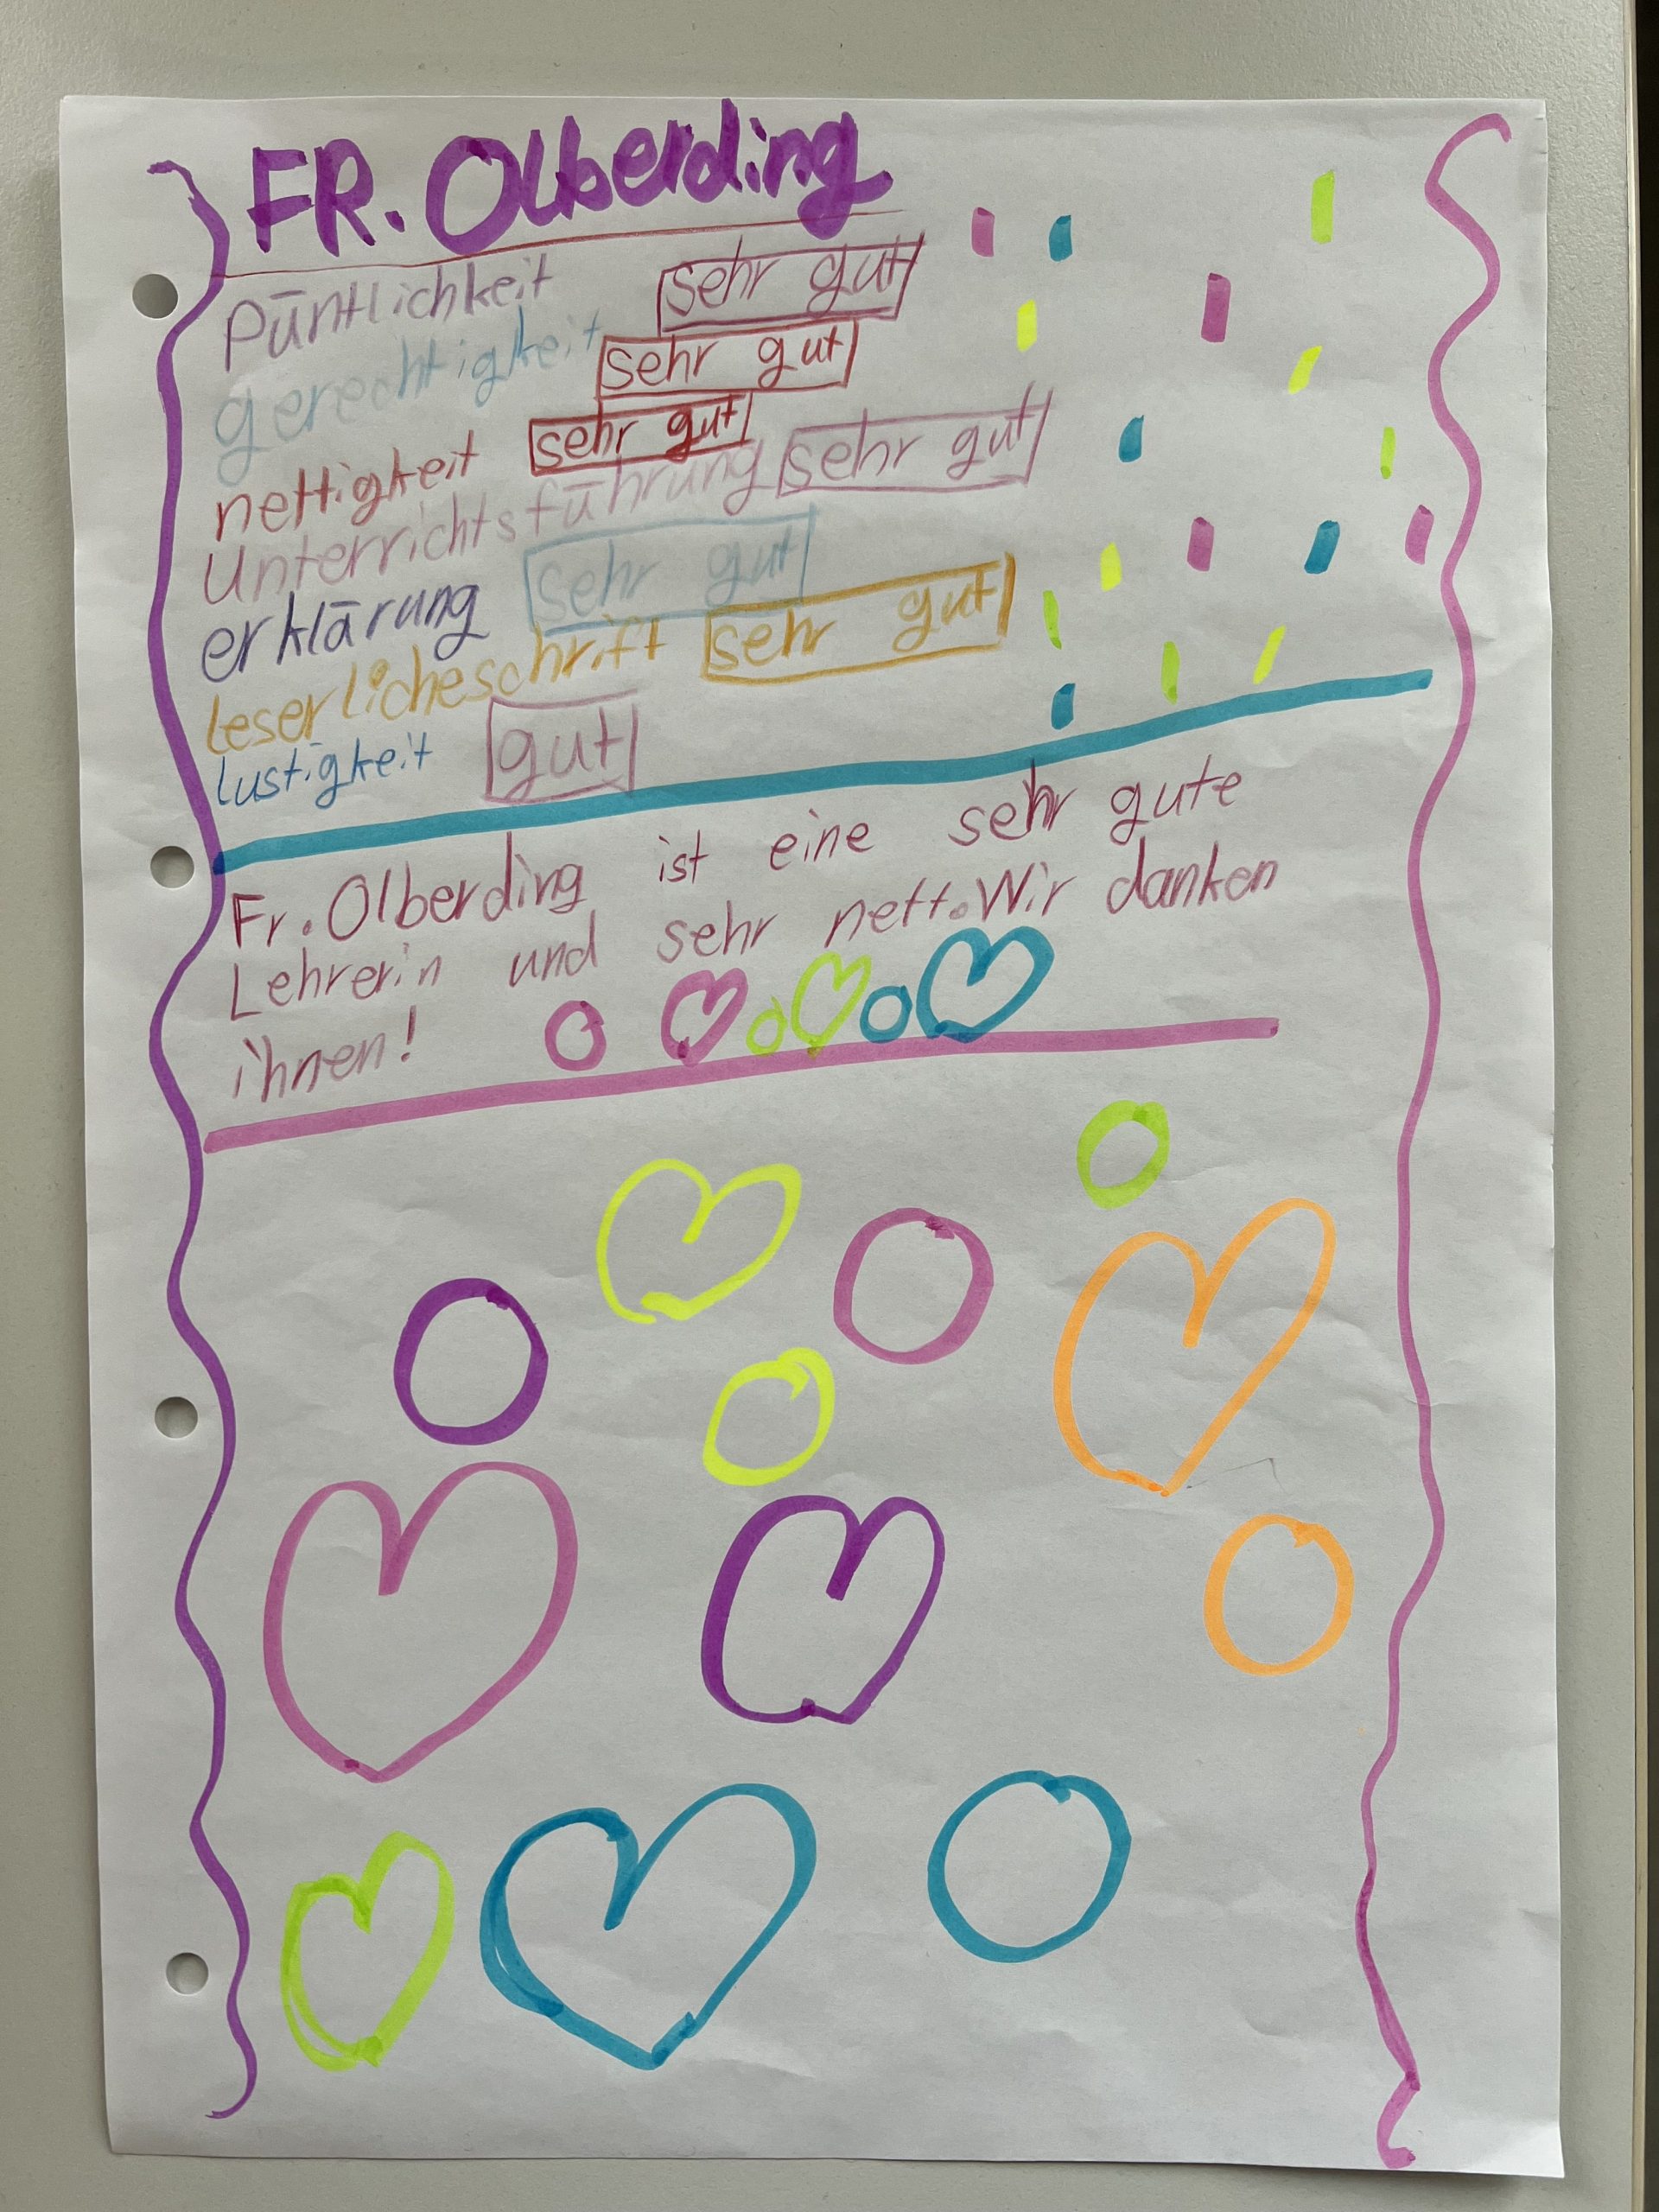 FR. Olberding
Püntlichkeit sehr gut
gerechtigkeit sehr gut
nettigkeit sehr gut
Unterrichtsführung sehr gut
erklärung sehr gut
leserlicheschrift sehr gut
lustigkeit gut
Fr. Olberding ist eine sehr gute
Lehrerin und sehr nett. Wir danken
ihnen!